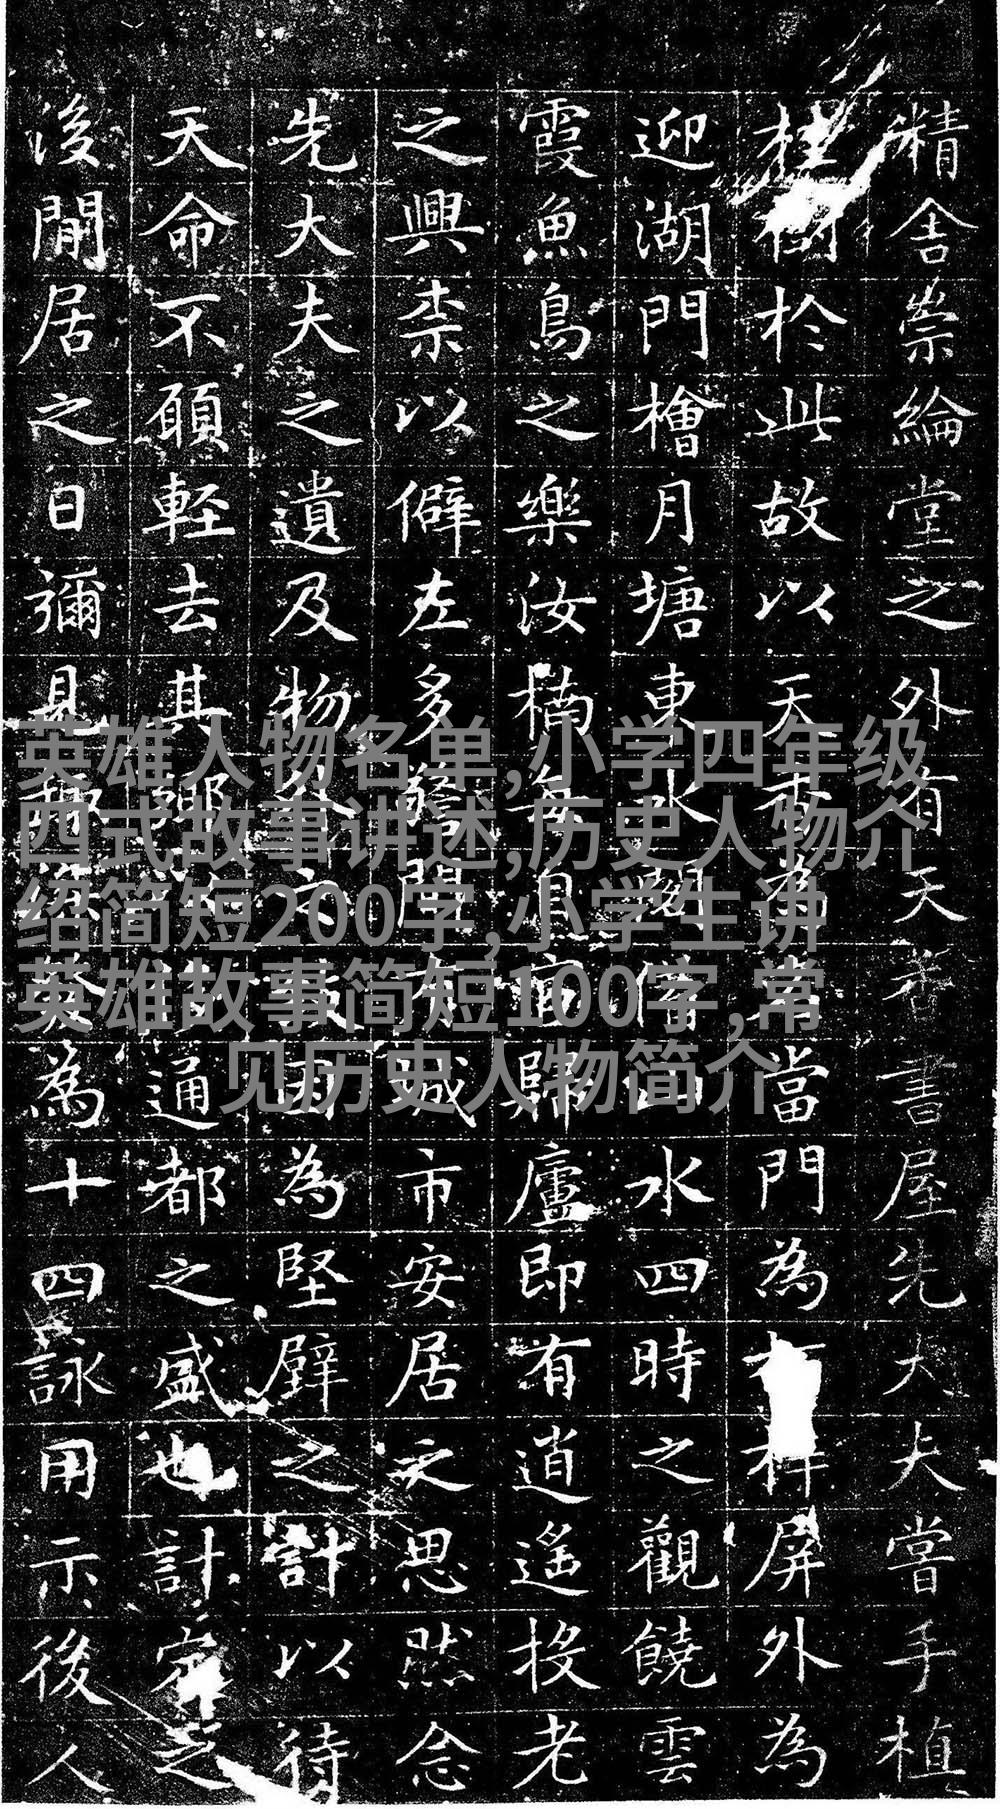 精舍崇綸堂之外有天香書屋先大夫嘗手植
桂樹於此故以天香為常當門為屏外為
迎湖門檜月塘東水四時之觀饒雲
霞魚鳥之樂汝楠每自歸廬即有逍遙投老
之興柰以僻左多警城市安居之思然念
先大夫之遺及物為堅壁之計以待
天命不願輕去其鄉通都之盛也計之
後閒居之日彌見為十四詠用示後人
英雄人物名单,小学四年级
四式故事讲述,历史人物介
绍简短200字,小学生讲
英雄故事简短100字,常
见历史人物简介